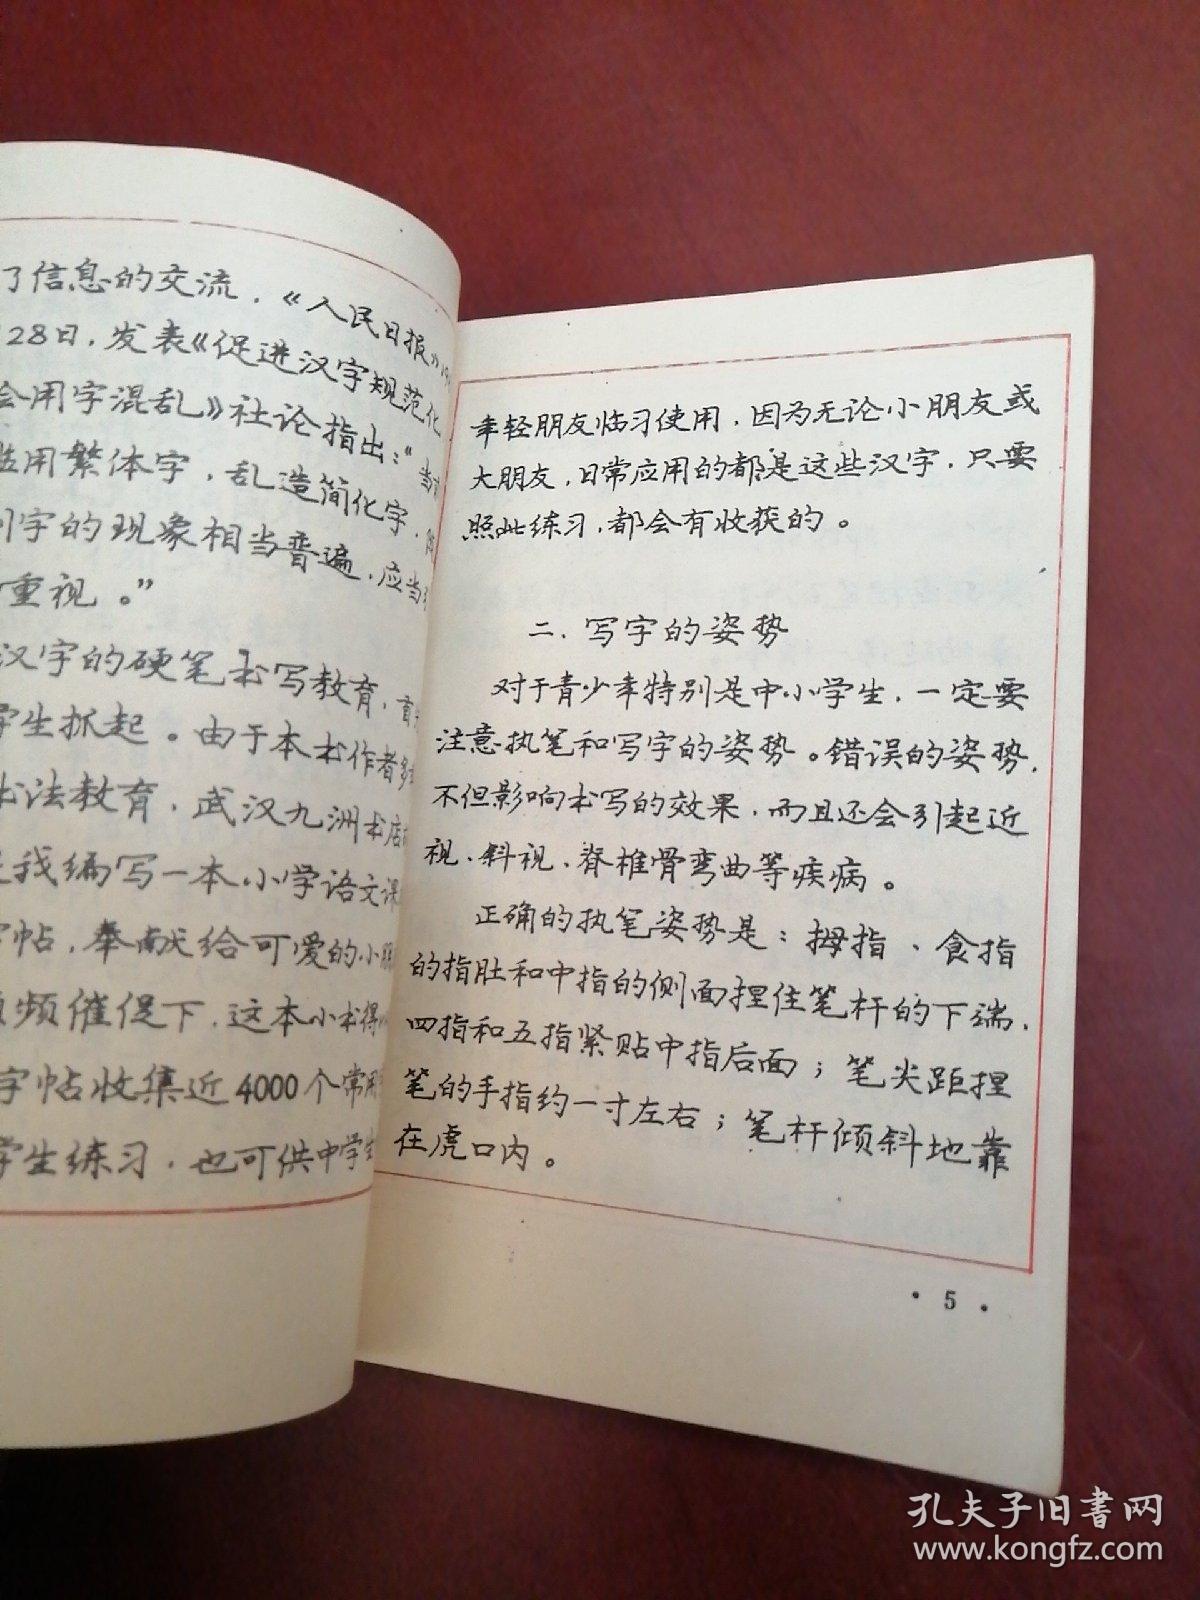 了信息的交流．《人民日报》19
28日．发表《促进汉字规范化
会用字混乱》社论指出："当
滥用繁体字，乱造简化字，
别字的现象相当普遍．应当
重视。"
汉字的硬笔书写教育．首
学生抓起。由于本书作者多
书法教育．武汉九洲书店
我编写一本小学语文课
字帖．奉献给可爱的小朋
频催促下．这本小书得以
字帖收集近4000个常用
学生练习．也可供中学生
年轻朋友临习使用．因为无论小朋友或
大朋友．日常应用的都是这些汉字．只要
照此练习．都会有收获的。
二．写字的姿势
对于青少年特别是中小学生．一定要
注意执笔和写字的姿势。错误的姿势．
不但影响书写的效果．而且还会引起近
视、斜视、脊椎骨弯曲等疾病。
正确的执笔姿势是：拇指、食指
的指肚和中指的侧面捏住笔杆的下端．
四指和五指紧贴中指后面；笔尖距捏
笔的手指约一寸左右；笔杆倾斜地靠
在虎口内。
·5·
孔夫子旧书网
www.kongfz.com